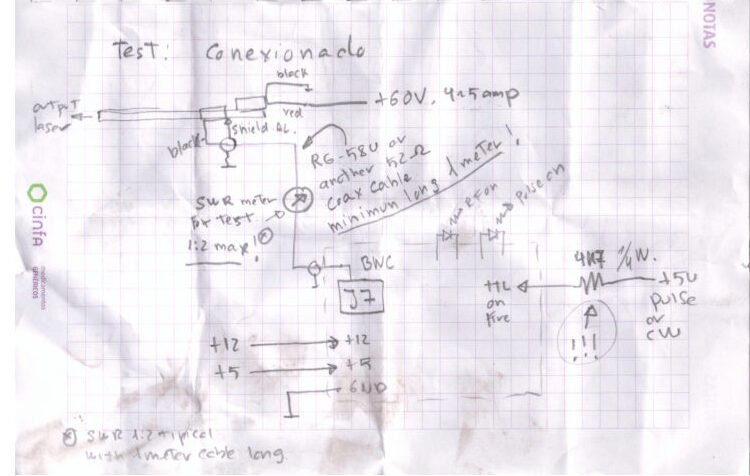 NOTAS
Test: Conexionado
black
output
laser
+60V, 4~5 amp
red
black
shield AL.
RG-58U or
another 52Ω
coax cable
minimun long 1 meter!
SWR meter
for test
1:2 max!
RF on
Pulse on
cinfa
medicamentos
GENÉRICOS
BNC
J7
4K7 1/4 W.
TTL
on
fire
+5V
pulse
or
CW
!!!
+12 +12
+5 +5
GND
SWR 1:2 tipical
with 1 meter cable long